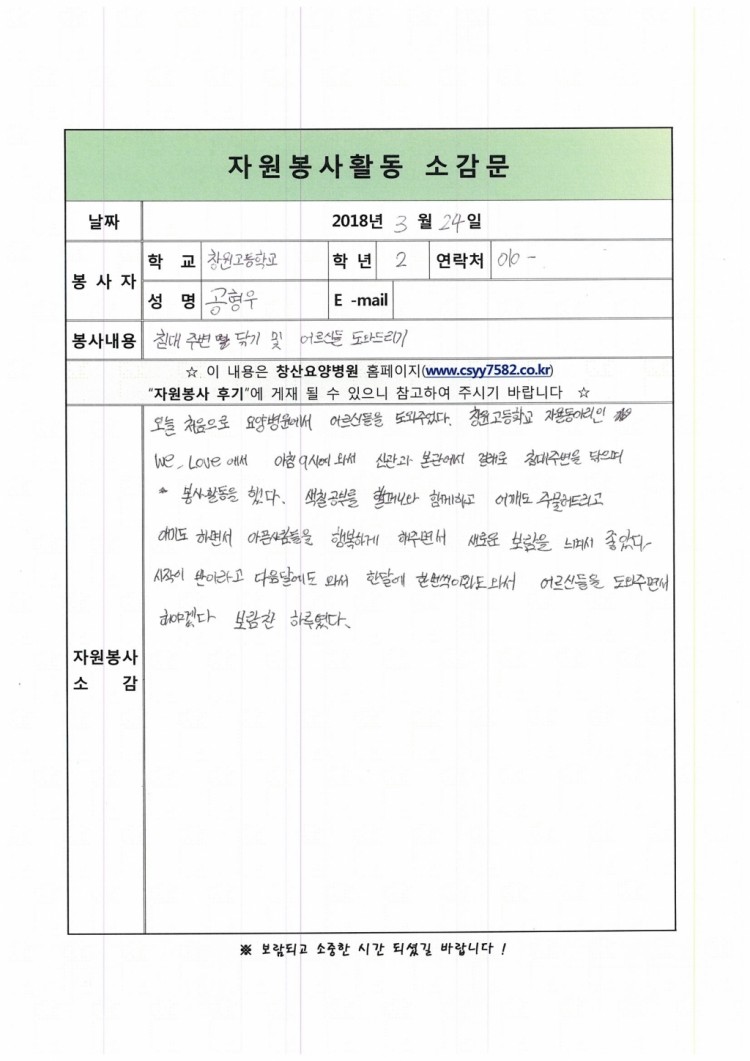 자원봉사활동 소감문
날짜 2018년 3 월 24일
봉 사 자
학 교 창원고등학교 학 년 2 연락처 010 -
성 명 공형우 E -mail
봉사내용 침대 주변 닦기 및 어르신들 도와드리기
☆ 이 내용은 창산요양병원 홈페이지(www.csyy7582.co.kr)
"자원봉사 후기"에 게재 될 수 있으니 참고하여 주시기 바랍니다 ☆
자원봉사
소 감
오늘 처음으로 요양병원에서 어르신들을 도와주었다. 창원고등학교 자율동아리인
We, Love 에서 아침 9시에 와서 신관과 본관에서 걸레로 침대주변을 닦으며
봉사활동을 했다. 색칠공부를 할머니와 함께하고 어깨도 주물러드리고
하면서 아픈사람들을 행복하게 해주면서 새로운 보람을 느껴서 좋았다.
시작이 반이라고 다음달에도 와서 한달에 한번씩이라도 와서 어르신들을 도와주면서
해야겠다 보람찬 하루였다.
※ 보람되고 소중한 시간 되셨길 바랍니다 !